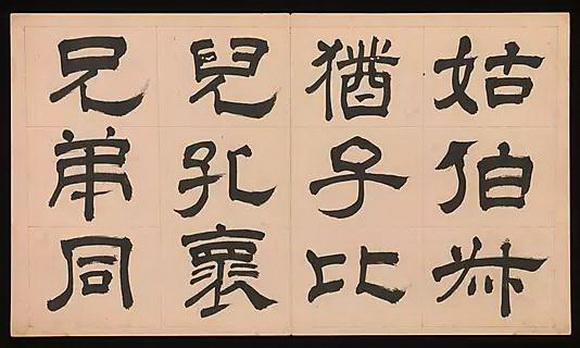 姑伯叔
猶子比
兒孔懷
兄弟同